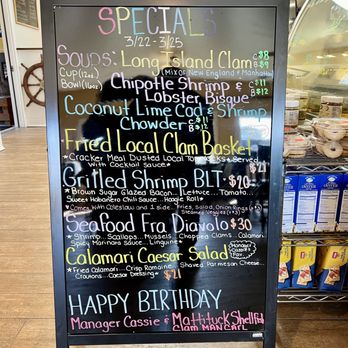 SPECIALS
3/22 - 3/25
SOUPS: Long Island Clam
Cup (12oz.)
(MIX OF New England & Manhattan)
Bowl (16oz.)
Chipotle Shrimp &
Lobster Bisque
Coconut Lime Cod & Shrimp
Chowder
Fried Local Clam Basket
* Cracker Meal Dusted Local Served
with Cocktail Sauce * $21
Grilled Shrimp BLT - $20
* Brown Sugar Glazed Bacon... Lettuce... Tomato...
Sweet Habanero Chili Sauce... Hoagie Roll *
* Comes with Coleslaw and 1 side: Fries, Salad, Onion Rings
Steamed Veggies
Seafood Fra Diavolo $30
* Shrimp... Scallops... Mussels... Chopped Clams... Calamari
Spicy Marinara Sauce... Linguine *
Calamari Caesar Salad
Manager
Cassie's
Fav
* Fried Calamari... Crisp Romaine... Shaved Parmesan Cheese...
Croutons... Caesar Dressing * $21
HAPPY BIRTHDAY
Manager Cassie & Mattituck Shellfish
Clam Man Carl